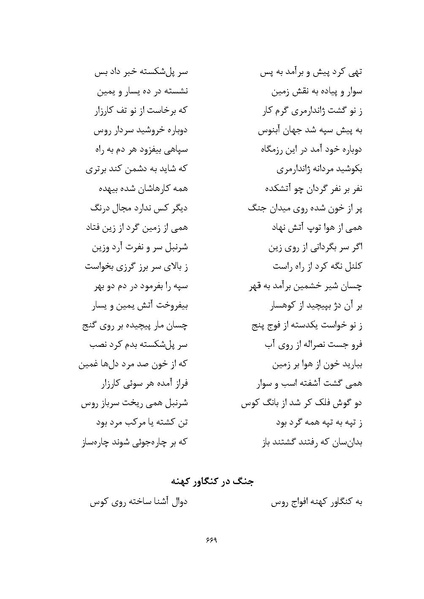 تهی کرد پیش و برآمد به پس سر پل‌شکسته خبر داد بس
سوار و پیاده به نقش زمین نشسته در ده یسار و یمین
ز نو گشت ژاندارمری گرم کار که برخاست از نو تف کارزار
به پیش سپه شد جهان آبنوس دوباره خروشید سردار روس
دوباره خود آمد در این رزمگاه سپاهی بیفزود هر دم به راه
بکوشید مردانه ژاندارمری که شاید به دشمن کند برتری
نفر بر نفر گردان چو آتشکده همه کارهاشان شده بیهده
پر از خون شده روی میدان جنگ دیگر کس ندارد مجال درنگ
همی از هوا توپ آتش نهاد همی از زمین گرد از زین فتاد
اگر سر بگردانی از روی زین شرنبل سر و نفرت آرد وزین
کلنل نگه کرد از راه راست ز بالای سر برز گرزی بخواست
چسان شیر خشمین برآمد به قهر سپه را بفرمود در دم دو بهر
بر آن دژ بپیچید از کوهسار بیفروخت آتش یمین و یسار
ز نو خواست یکدسته از فوج پنج چسان مار پیچیده بر روی گنج
فرو جست نصراله از روی آب سر پل‌شکسته بدم کرد نصب
ببارید خون از هوا بر زمین که از خون صد مرد دل‌ها غمین
همی گشت آشفته اسب و سوار فراز آمده هر سوئی کارزار
دو گوش فلک کر شد از بانگ کوس شرنبل همی ریخت سرباز روس
ز تپه به تپه همه گرد بود تن کشته یا مرکب مرد بود
بدان‌سان که رفتند گشتند باز که بر چاره‌جوئی شوند چاره‌ساز
جنگ در کنگاور کهنه
به کنگاور کهنه افواج روس دوال آشنا ساخته روی کوس
۶۶۹